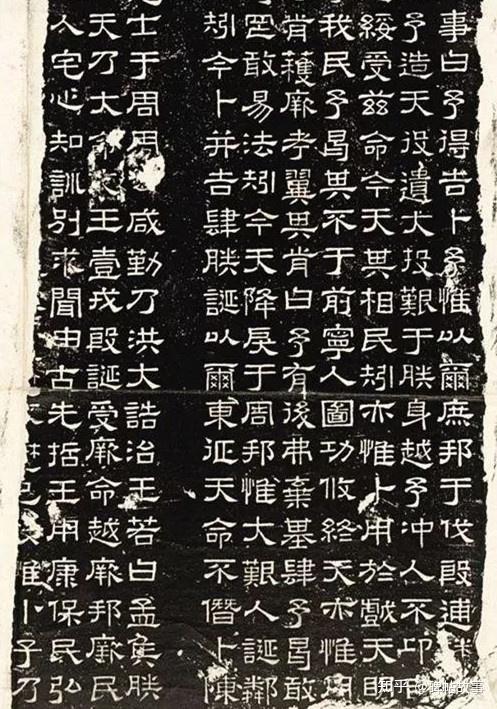 事曰予得吉卜予惟以爾庶邦于伐殷逋
予造天役遺大投艱于朕身越予冲人不卬
綏受茲命今天其相民矧亦惟卜用於戲天明
我民予曷其不于前寧人圖功攸終天亦惟用
肯穫厥考翼其肯曰予有後弗棄基肆予曷敢
罔敢易法矧今天降戾于周邦惟大艱人誕鄰
矧今卜并吉肆朕誕以爾東征天命不僭卜陳
士于周周咸勤乃洪大誥治王若曰孟侯朕
天乃大命王壹戎殷誕受厥命越厥邦厥民
人宅心知訓別求聞由古先哲王用康保民弘
惟小子乃
知乎 @碑帖故事